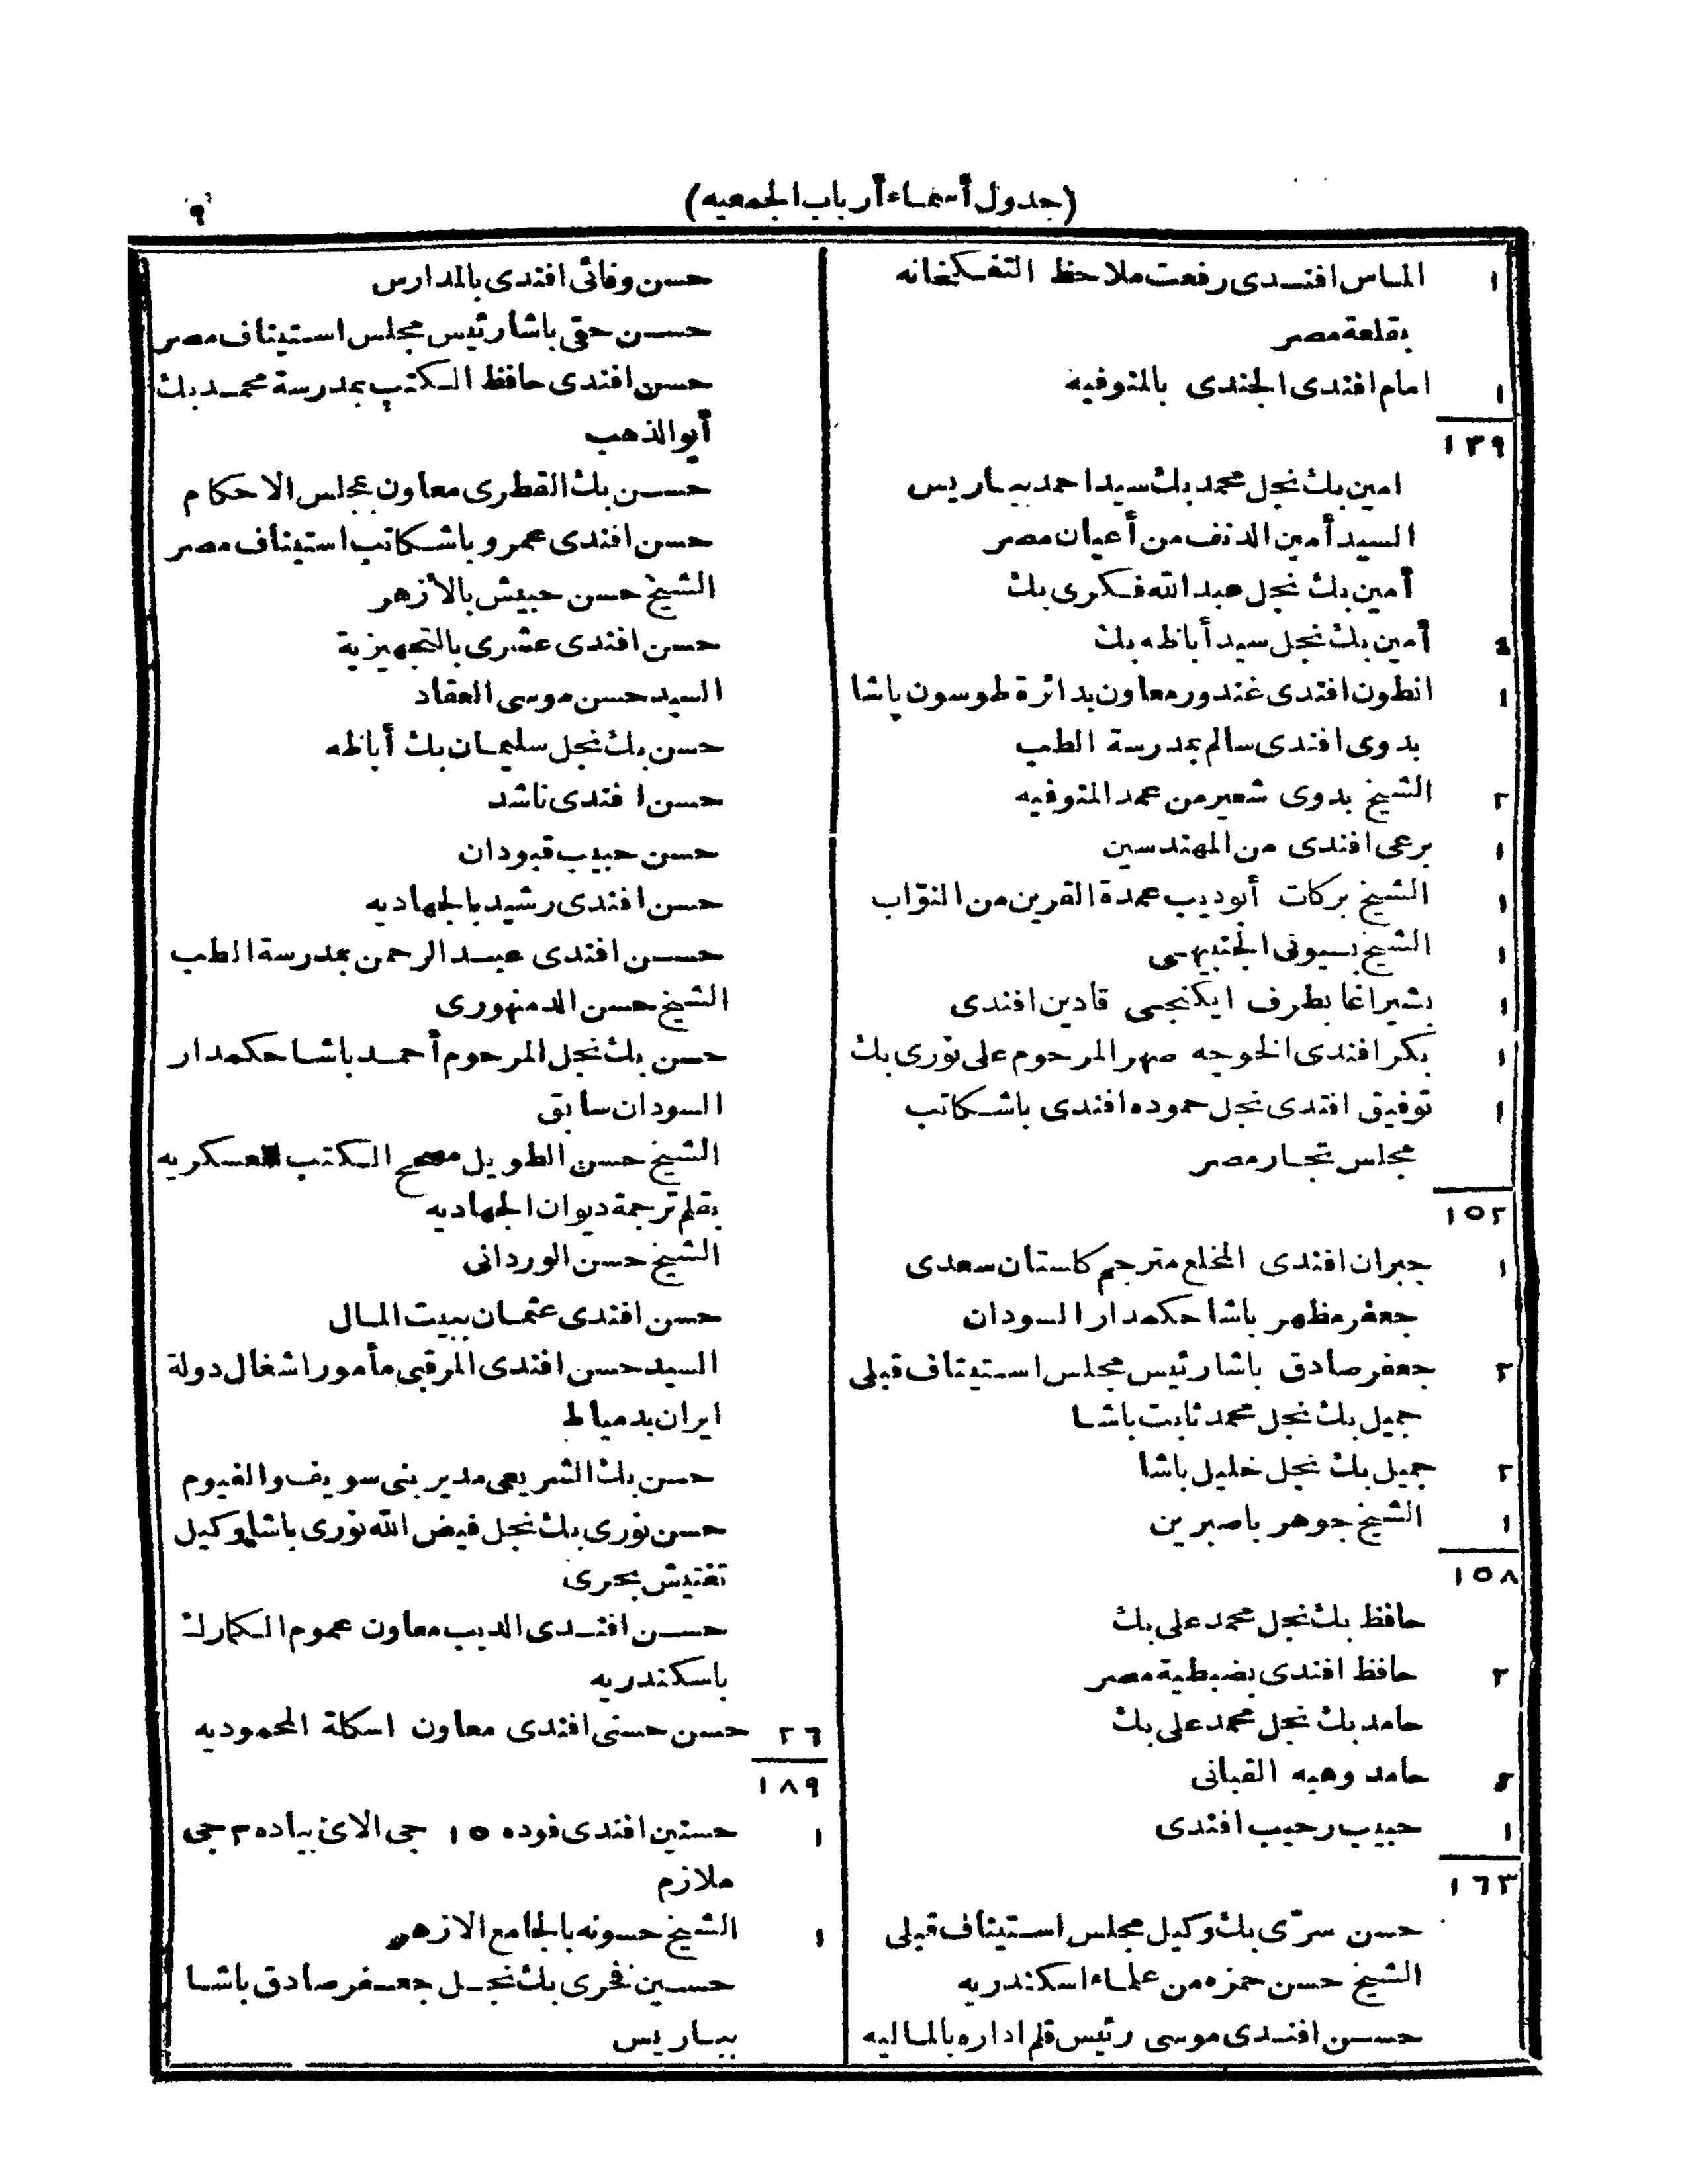 (جدول أسماء أرباب الجمعيه)
٩
١ الماس افندى رفعت ملاحظ التفكخانه
بقلعة مصر
١ امام افندى الجندى بالمنوفيه
١٣٩
امين بك نجل محمد بك سيد احمد بباريس
السيد أمين الدنف من أعيان مصر
أمين بك نجل عبد الله فكرى بك
٤ أمين بك نجل سيد أباظه بك
١ انطون افندى غندور معاون بدائرة طوسون باشا
بدوى افندى سالم بمدرسة الطب
٢ الشيخ بدوى شعير من عمد المنوفيه
١ برعى افندى من المهندسين
١ الشيخ بركات أبوديب عمدة القرين من النوّاب
١ الشيخ بسيونى الجنبيهى
١ بشير اغا بطرف ايكنجى قادين افندى
١ بكر افندى الخوجه صهر المرحوم على نورى بك
١ توفيق افندى نجل حموده افندى باشكاتب
مجلس تجار مصر
١٥٢
١ جبران افندى المخلع مترجم كلستان سعدى
جعفر مظهر باشا حكمدار السودان
٢ جعفر صادق باشا رئيس مجلس استيناف قبلى
جميل بك نجل محمد ثابت باشا
٢ جميل بك نجل خليل باشا
١ الشيخ جوهر باصبرين
١٥٨
حافظ بك نجل محمد على بك
٢ حافظ افندى بضبطية مصر
حامد بك نجل محمد على بك
٢ حامد وهبه القبانى
١ حبيب رحيب افندى
١٦٣
حسن سرّى بك وكيل مجلس استيناف قبلى
الشيخ حسن حمزه من علماء اسكندريه
حسن افندى موسى رئيس قلم اداره بالماليه
حسن وفائى افندى بالمدارس
حسن حقى باشا رئيس مجلس استيناف مصر
حسن افندى حافظ الكتب بمدرسة محمد بك
أبو الذهب
حسن بك القطرى معاون بمجلس الاحكام
حسن افندى عمرو باشكاتب استيناف مصر
الشيخ حسن حبيش بالازهر
حسن افندى عشرى بالتجهيزية
السيد حسن موسى العقاد
حسن بك نجل سليمان بك أباظه
حسن افندى ناشد
حسن حبيب قبودان
حسن افندى رشيد بالجهاديه
حسن افندى عبد الرحمن بمدرسة الطب
الشيخ حسن الدمنهورى
حسن بك نجل المرحوم أحمد باشا حكمدار
السودان سابق
الشيخ حسن الطويل مصحح الكتب العسكريه
بقلم ترجمة ديوان الجهاديه
الشيخ حسن الوردانى
حسن افندى عثمان ببيت المال
السيد حسن افندى المرقبى مأمور اشغال دولة
ايران بدمياط
حسن بك الشريعى مدير بنى سويف والفيوم
حسن نورى بك نجل فيض الله نورى باشا وكيل
تفتيش بحرى
حسن افندى الديب معاون عموم الكمارك
باسكندريه
٢٦ حسن حسنى افندى معاون اسكلة المحموديه
١٨٩
١ حسنين افندى فوده ١٥ جى الاى بياده ٣ جى
ملازم
١ الشيخ حسونه بالجامع الازهر
حسين فخرى بك نجل جعفر صادق باشا
بباريس